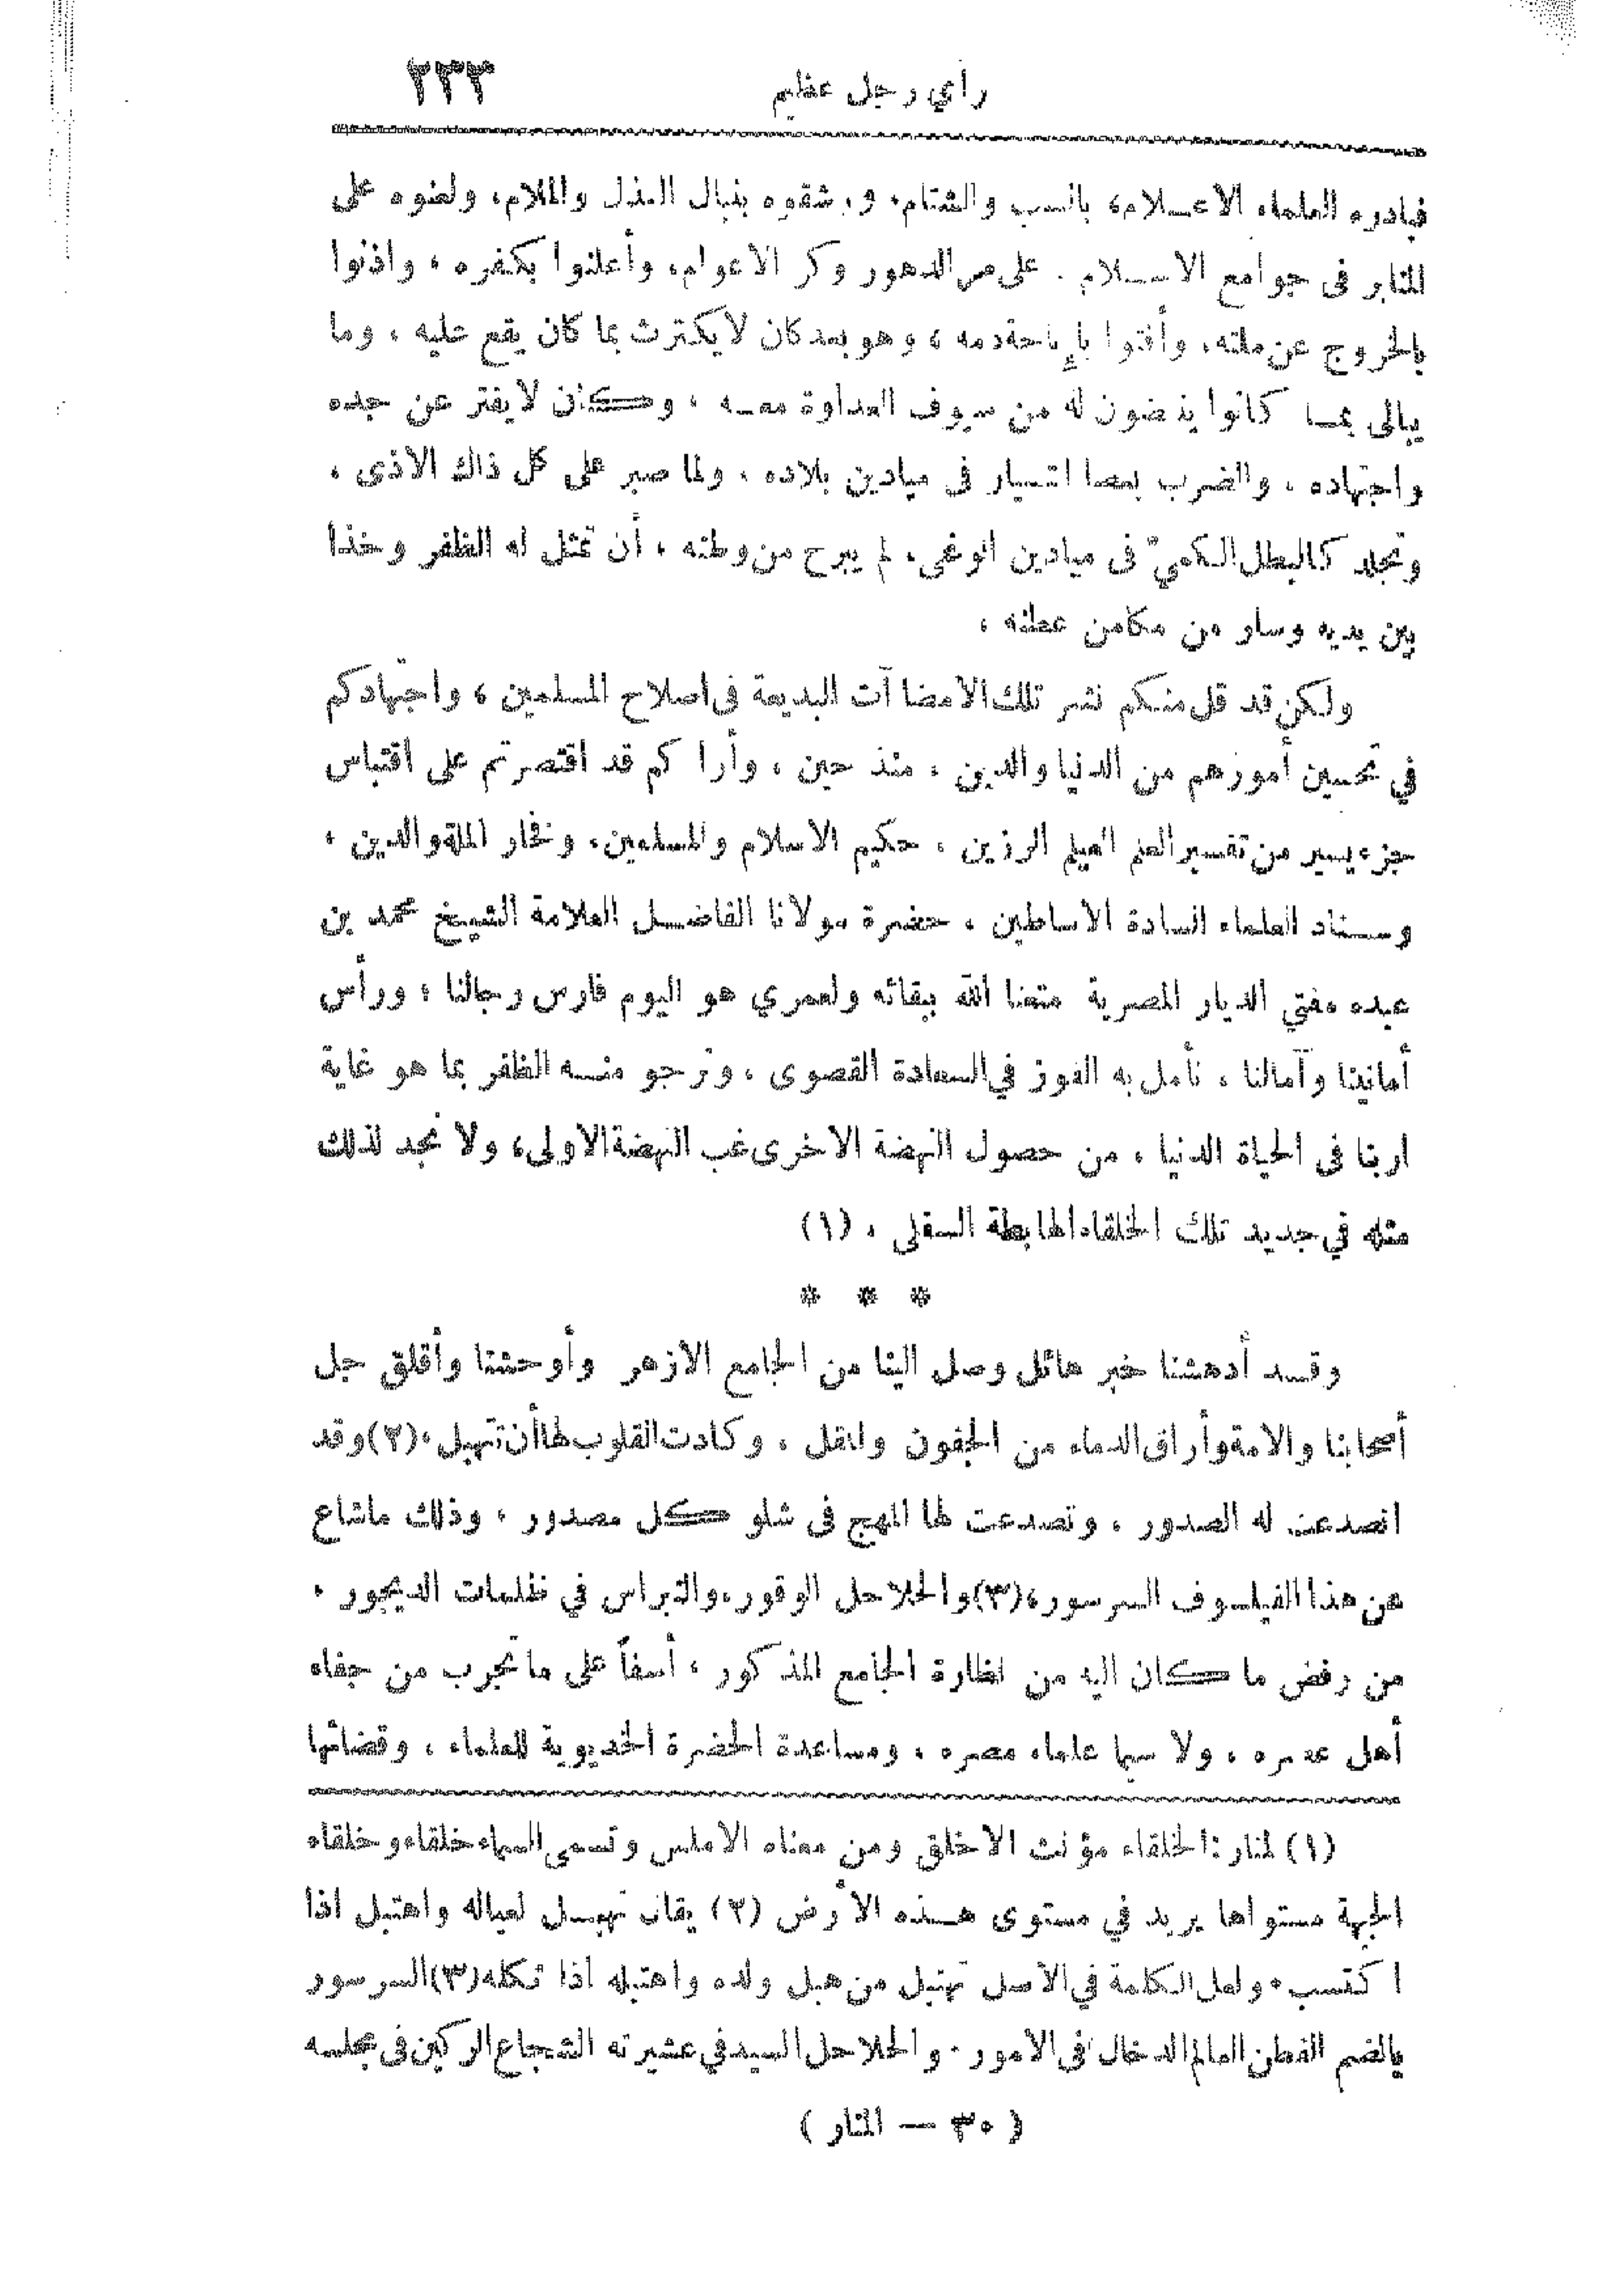 رأي رجل عظيم ٢٣٣
فبادره العلماء الاعـلام، بالسب والشتام، ورشقوه بنبال العذل والملام، ولعنوه على
المنابر فى جوامع الاسـلام . على مر الدهور وكر الاعوام، وأعلنوا بكفره ، واذنوا
بالخروج عن ملته، وأفتوا بإباحة دمه ، وهو بعد كان لا يكترث بما كان يقع عليه ، وما
يبالى بمـا كانوا ينضون له من سيوف العداوة معـه ، وكان لا يفتر عن جده
واجتهاده ، والضرب بعصا التسيار فى ميادين بلاده ، ولما صبر على كل ذاك الاذى ،
وتجلد كالبطل الكميّ فى ميادين الوغى، لم يبرح من وطنه ، أن تمثل له الظفر وخذا
بين يديه وسار من مكامن عطنه ،
ولكن قد قل منكم نشر تلك الامضاآت البديعة فى اصلاح المسلمين ، واجتهادكم
في تحسين أمورهم من الدنيا والدين ، منذ حين ، وأراكم قد اقتصرتم على اقتباس
جزء يسير من تفسير العلم العيلم الرزين ، حكيم الاسلام والمسلمين، وفخار الملة والدين ،
وسـناد العلماء السادة الاساطين ، حضرة مولانا الفاضـل العلامة الشيخ محمد بن
عبده مفتي الديار المصرية متعنا الله ببقائه ولعمري هو اليوم فارس رجالنا ، ورأس
أمانينا وآمالنا ، نأمل به الفوز في السعادة القصوى ، ونرجو منـه الظفر بما هو غاية
اربنا فى الحياة الدنيا ، من حصول النهضة الاخرى غب النهضة الاولى، ولا نجد لذلك
مثله في جديد تلك الخلقاء الهابطة السفلى ، (١)
* * *
وقـد أدهشنا خبر هائل وصل الينا من الجامع الازهر وأوحشنا وأقلق جل
أصحابنا والامة وأراق الدماء من الجفون والمقل ، وكادت القلوب لها أن تهبل،(٢) وقد
انصدعت له الصدور ، وتصدعت لها المهج فى شلو كل مصدور ، وذلك ماشاع
عن هذا الفيلسوف السرسور،(٣) والحلاحل الوقور، والنبراس في ظلمات الديجور ،
من رفض ما كان اليه من نظارة الجامع المذكور ، أسفاً على ما تجرب من جفاء
أهل عصره ، ولا سيما علماء مصره ، ومساعدة الحضرة الخديوية للعلماء ، وقضائها
(١) المنار: الخلقاء مؤنث الاخلق ومن معناه الاملس وتسمى السماء خلقاء وخلقاء
الجبهة مستواها يريد في مستوى هـذه الأرض (٢) يقال تهبـل لعياله واهتبل اذا
اكتسب، ولعل الكلمة في الاصل تهتبل من هبل ولده واهتبله اذا ثكله (٣) السرسور
بالضم الفطن العالم الدخال فى الامور. والحلاحل السيد في عشيرته الشجاع الركين فى مجلسه
( ٣٠ — المنار )